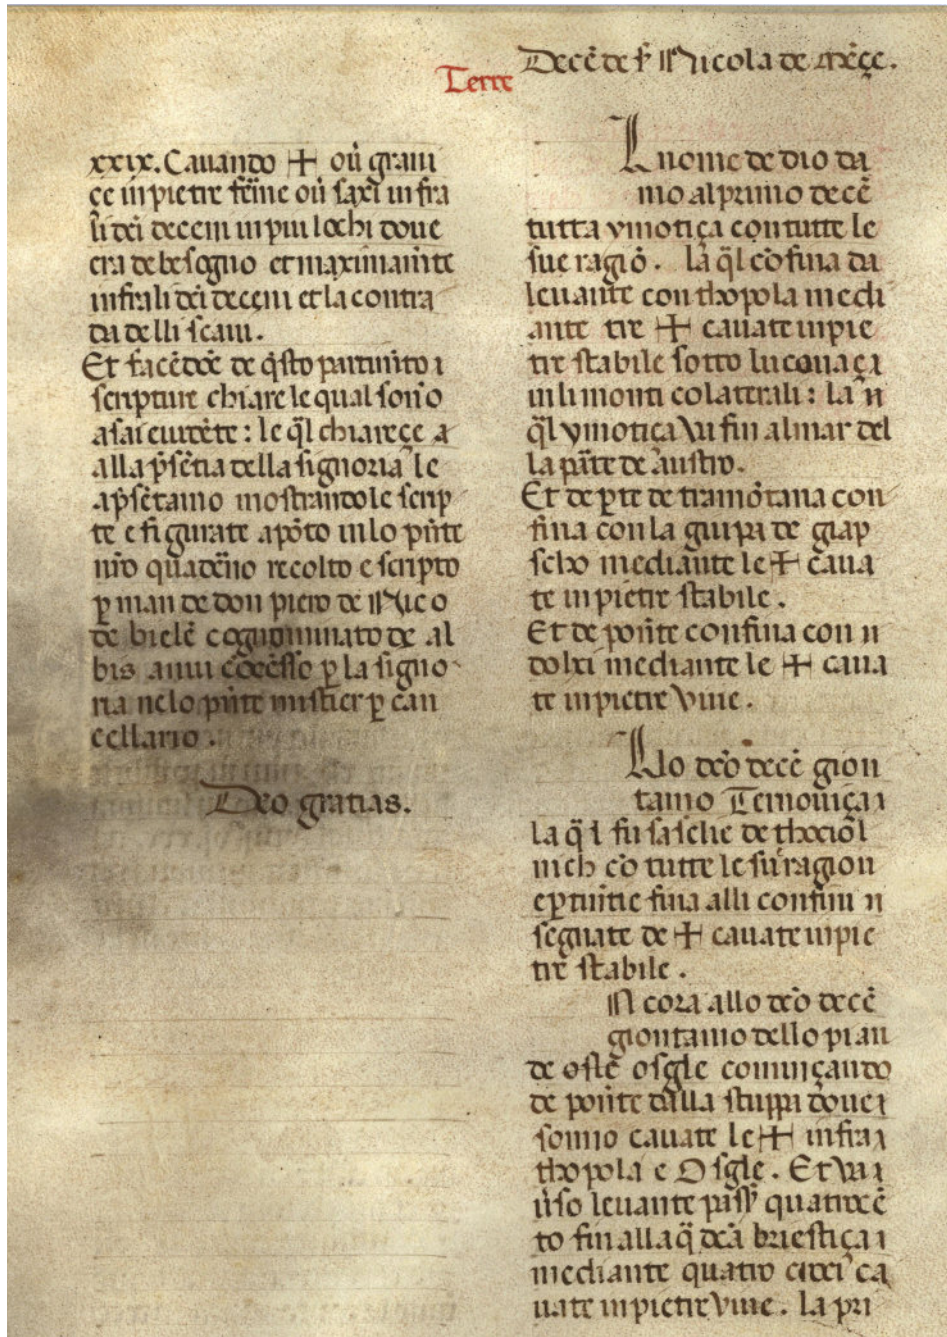 Decē de s Nicola de mēçe.
Terre
xxix. Cauando + oū graui
ce in pietre ferme oū saxi in fra
li dci deceni in piu lochi doue
era de besogno et maximamte
infra li dci deceni et la contra
da delli scaui.
Et facēdoē de qsto partimto i
scripture chiare le qual sonno
asai euidēte: le ql chiareçe a
alla psētia della signoria le
apsētamo mostrandole scrip
te e figurate apōto in lo pnte
nro quadēno recolto e scripto
p man de don piero de Nico
de bielē cognominato de al
bis anni cōcesso p la signo
ria nelo pnte mistier p can
cellario.
Deo gratias.
In nome de dio da
mo al primo decē
tutta vinotiça con tutte le
sue ragiō. La ql cōfina da
leuante con thopola medi
ante tre + cauate in pie
tre stabile sotto lu couaça
in li monti colaterali: la n
ql vinotiça va fin al mar del
la pārte de austro.
Et de pte de tramōtana con
fina con la giupa de giap
scho mediante le + caua
te in pietre stabile.
Et de ponte confina con n
dolci mediante le + caua
te in pietre viue.
Alo dcō decē gion
tamo Ternouiça i
la q l fu saselie de theciōl
nich cō tutte le su ragion
e ptintie fina alli confini n
segnate de + cauate in pie
tre stabile.
Ancora allo dcō decē
giontamo dello pian
de oslē osgle cominçando
de ponte dalla stuppi doue i
sonno cauate le + infra i
thopola e Osgle. Et va i
uso leuante pass quatrocē
to fin alla q dcā briestiça i
mediante quatro croci ca
uate in pietre viue. la pri